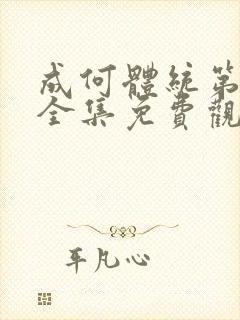 成何體統第
全集免費觀
平凡心